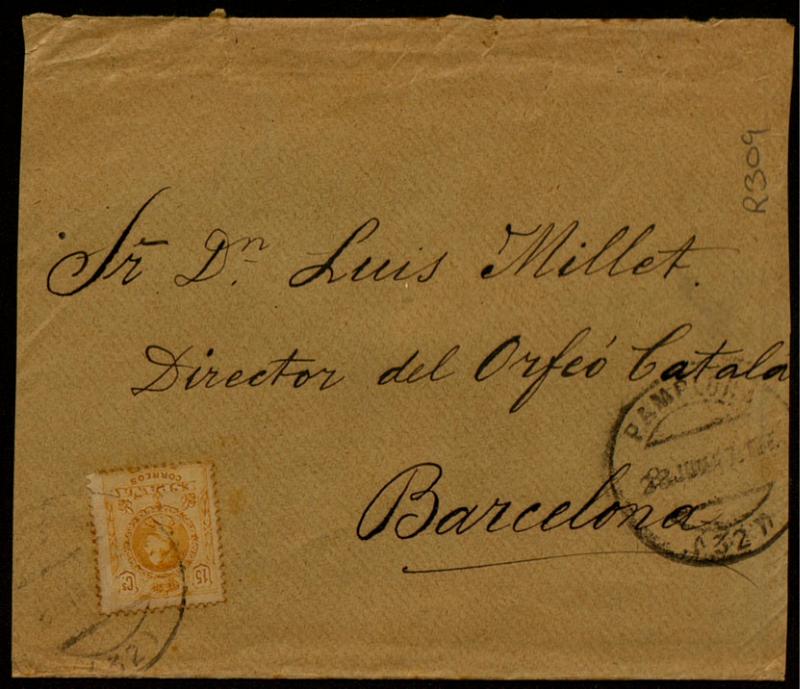 R309
Sr. Dn. Luis Millet.
Director del Orfeó Català
Barcelona
PAMPLONA
(32)
CORREOS
15 Cs
(32)